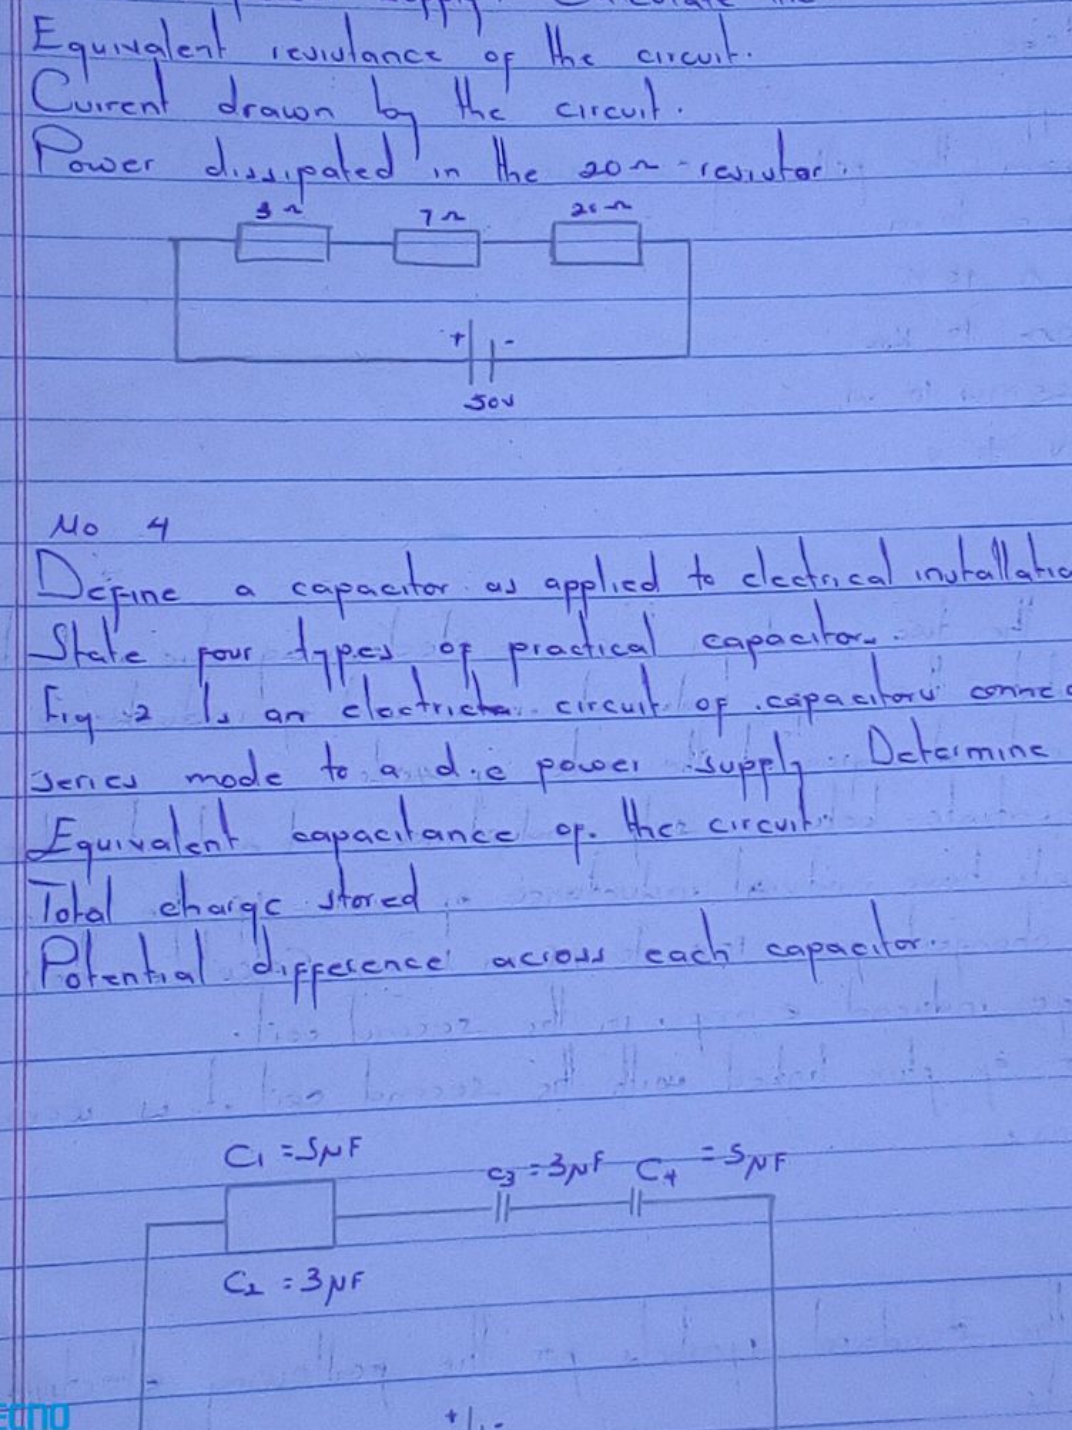 Equivalent resistance of the circuit.
Current drawn by the circuit.
Power dissipated in the 20Ω - resistor.
7Ω
+ -
50V
No 4
Define a capacitor as applied to electrical installatio
State four types of practical capacitor.
Fig 2 Is an electrical circuit of capacitors connec
series mode to a d.c power supply. Determine
Equivalent capacitance of the circuit.
Total charge stored.
Potential difference across each capacitor.
C1 = 5μF
C3 = 3μF C4 = 5μF
C2 = 3μF
+ -
ECNO